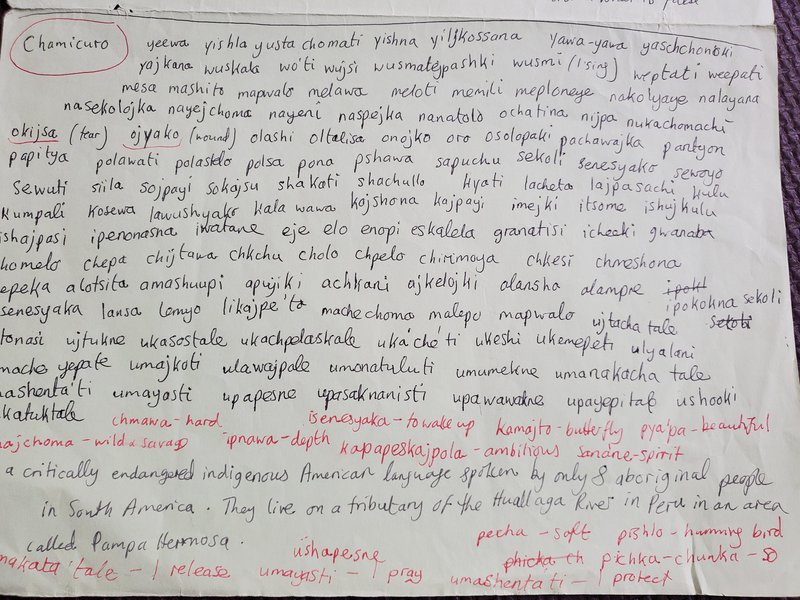 Chamicuro yeewa yishla yusta chomati yishna yiljkossana yawa-yawa yaschchontoki
yajkana wuskala wo'ti wujsi wusmatejpashki wusmi (1 sing) weptati weepati
mesa mashito mapwalo melawa meloti memili meploneye nako'yaye nalayana
nasekolojka nayejchoma nayeni naspejka nanatolo ochatina nijpa nukachomachi
okijsa (tear) ojyako (wound) olashi oltalisa onojko oro osolopaki pachawajka pantyon
papitya polawati polastelo polsa pona pshawa sapuchu sekoli senesyako sewoyo
sewuti siila sojpayi sokajsu shakoti shachullo kyati lacheta lajpasachi kulu
kumpali kosewa lawushyako kala wawa kojshona kajpayi imejki itsome ishujkulu
ishajpasi ipenonasna iwatane eje elo enopi eskalela granatisi icheeki gwanaba
chepa chijtawa chkchu cholo chpelo chirimoya chkesi chmeshona
alotsita amashuupi apujiki achkani ajkelojki alansha alampre ipokokna sekoli
senesyaka lansa lomyo likajpe'ta machechoma malepo mapwalo ujtacha tale
ujtukne ukasostale ukachpolaskale uka'che'ti ukeshi ukemepeti ulyalani
yepate umajkoti ulawajpale umonatuluti umumekne umanakacha tale
umayasti upapesne upasaknanisti upawawakne upayepitale ushooki
chmawa - hard isenesyaka - to wake up kamajto - butterfly pya'pa - beautiful
- wild & savage ipnawa - depth kapapeskajpola - ambitious sandne - spirit
a critically endangered indigenous American language spoken by only 8 aboriginal people
in South America. They live on a tributary of the Huallaga River in Peru in an area
called Pampa Hermosa. pecha - soft pishlo - humming bird
ushapesne pichka-chunka - 50
tale - I release umayasti - I pray umashentati - I protect